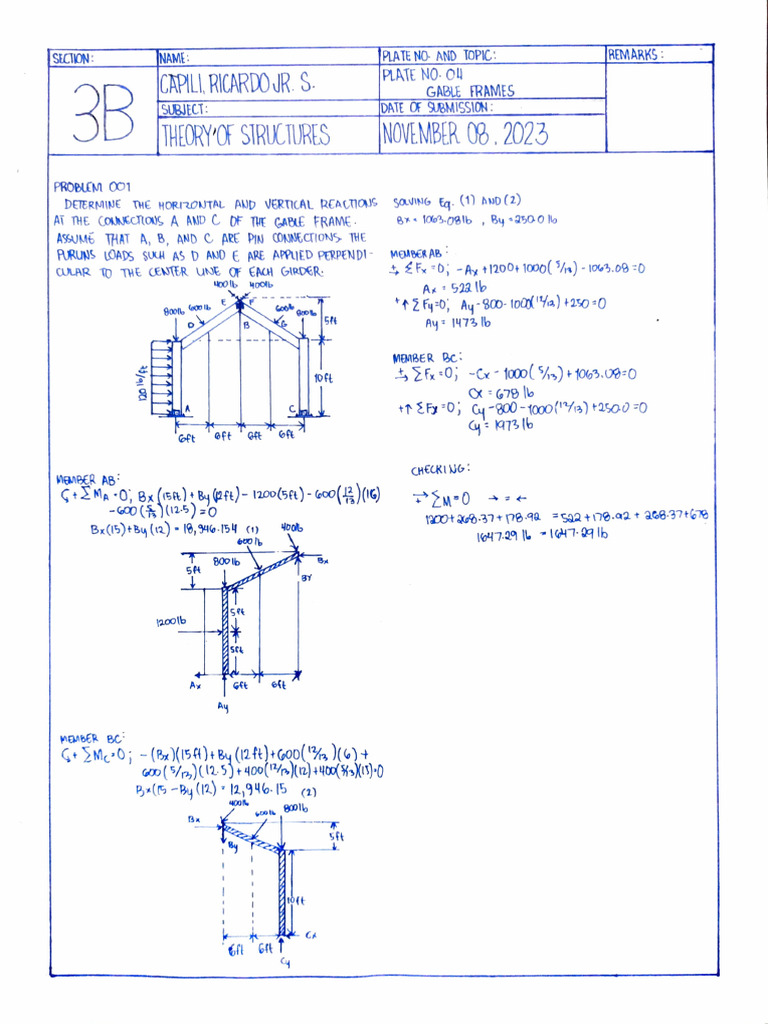 SECTION:
3B
NAME:
CAPILI, RICARDO JR. S.
SUBJECT:
THEORY OF STRUCTURES
PLATE NO. AND TOPIC:
PLATE NO. 04
GABLE FRAMES
DATE OF SUBMISSION:
NOVEMBER 08, 2023
REMARKS:
PROBLEM 001
DETERMINE THE HORIZONTAL AND VERTICAL REACTIONS
AT THE CONNECTIONS A AND C OF THE GABLE FRAME.
ASSUME THAT A, B, AND C ARE PIN CONNECTIONS. THE
PURLINS LOADS SUCH AS D AND E ARE APPLIED PERPENDI-
CULAR TO THE CENTER LINE OF EACH GIRDER.
400lb 400lb
800lb 600lb E F 600lb 800lb
D B G
5ft
120 lb/ft
10ft
A C
6ft 6ft 6ft 6ft
MEMBER AB:
↶+ ΣMA = 0; Bx(15ft) + By(12ft) - 1200(5ft) - 600(12/13)(16)
- 600(5/13)(12.5) = 0
Bx(15) + By(12) = 18,946.154 (1)
400lb
600lb
800lb
Bx
5ft
BY
5ft
1200lb
5ft
Ax
6ft 6ft
Ay
MEMBER BC:
↶+ ΣMC = 0; -(Bx)(15ft) + By(12ft) + 600(12/13)(6) +
600(5/13)(12.5) + 400(12/13)(12) + 400(5/13)(15) = 0
Bx(15 - By(12) = 12,946.15 (2)
400lb 600lb 800lb
Bx
By
5ft
10ft
6ft 6ft
Cx
Cy
SOLVING Eq. (1) AND (2)
Bx = 1063.08lb , By = 250.0 lb
MEMBER AB:
+→ ΣFx = 0; -Ax + 1200 + 1000(5/13) - 1063.08 = 0
Ax = 522 lb
+↑ ΣFy = 0; Ay - 800 - 1000(12/13) + 250 = 0
Ay = 1473 lb
MEMBER BC:
+→ ΣFx = 0; -Cx - 1000(5/13) + 1063.08 = 0
Cx = 678 lb
+↑ ΣFx = 0; Cy - 800 - 1000(12/13) + 250.0 = 0
Cy = 1973 lb
CHECKING:
+→ ΣM = 0 → = ←
1200 + 268.37 + 178.92 = 522 + 178.92 + 268.37 + 678
1647.29 lb = 1647.29 lb